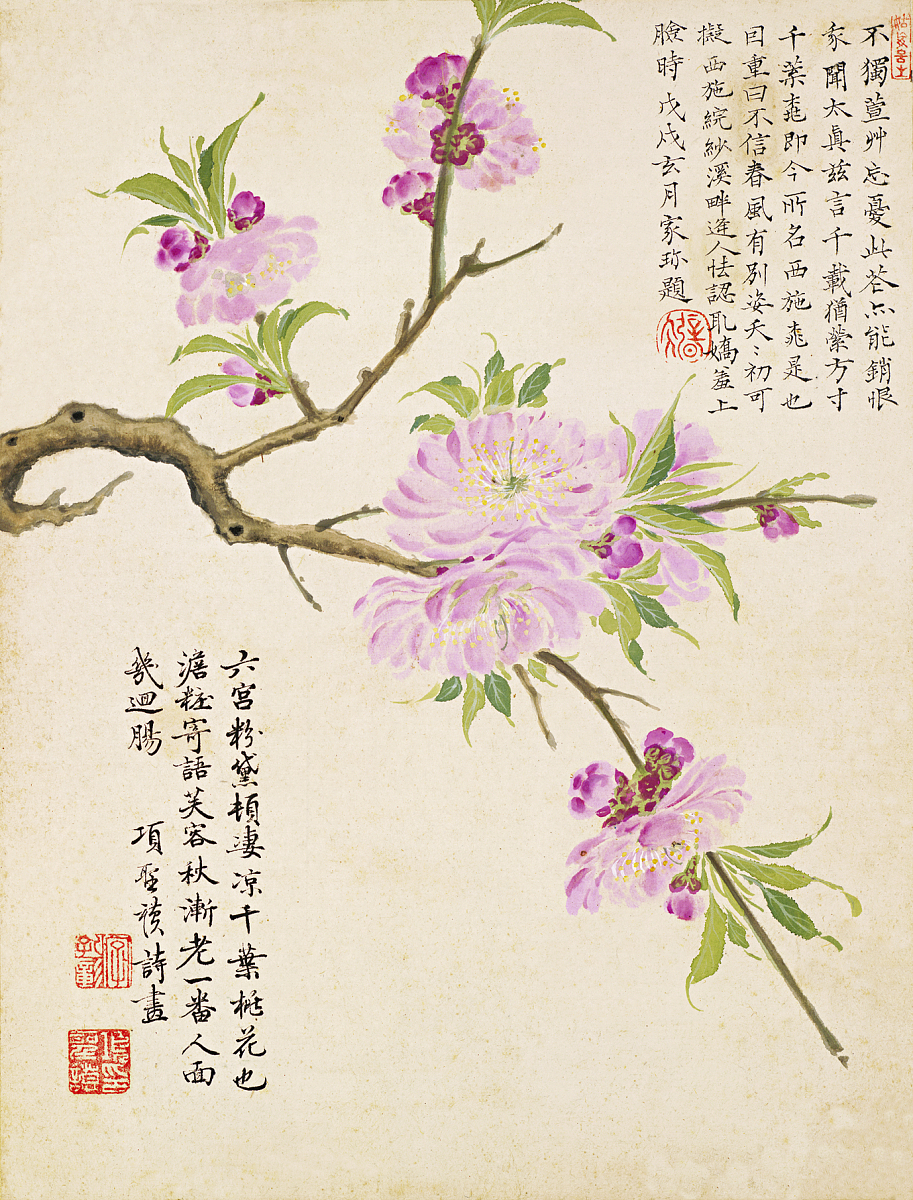 不獨萱艸忘憂此花亦能銷恨
聞太真茲言千載猶縈方寸
千葉桃即今所名西施桃是也
因重曰不信春風有別姿夭〻初可
擬西施綄紗溪畔逢人怯認取嬌羞上
臉時 戊戌玄月家珍題
六宮粉黛頓凄凉千葉桃花也
澹粧寄語芙容秋漸老一番人面
幾迴腸 項聖謨詩畫